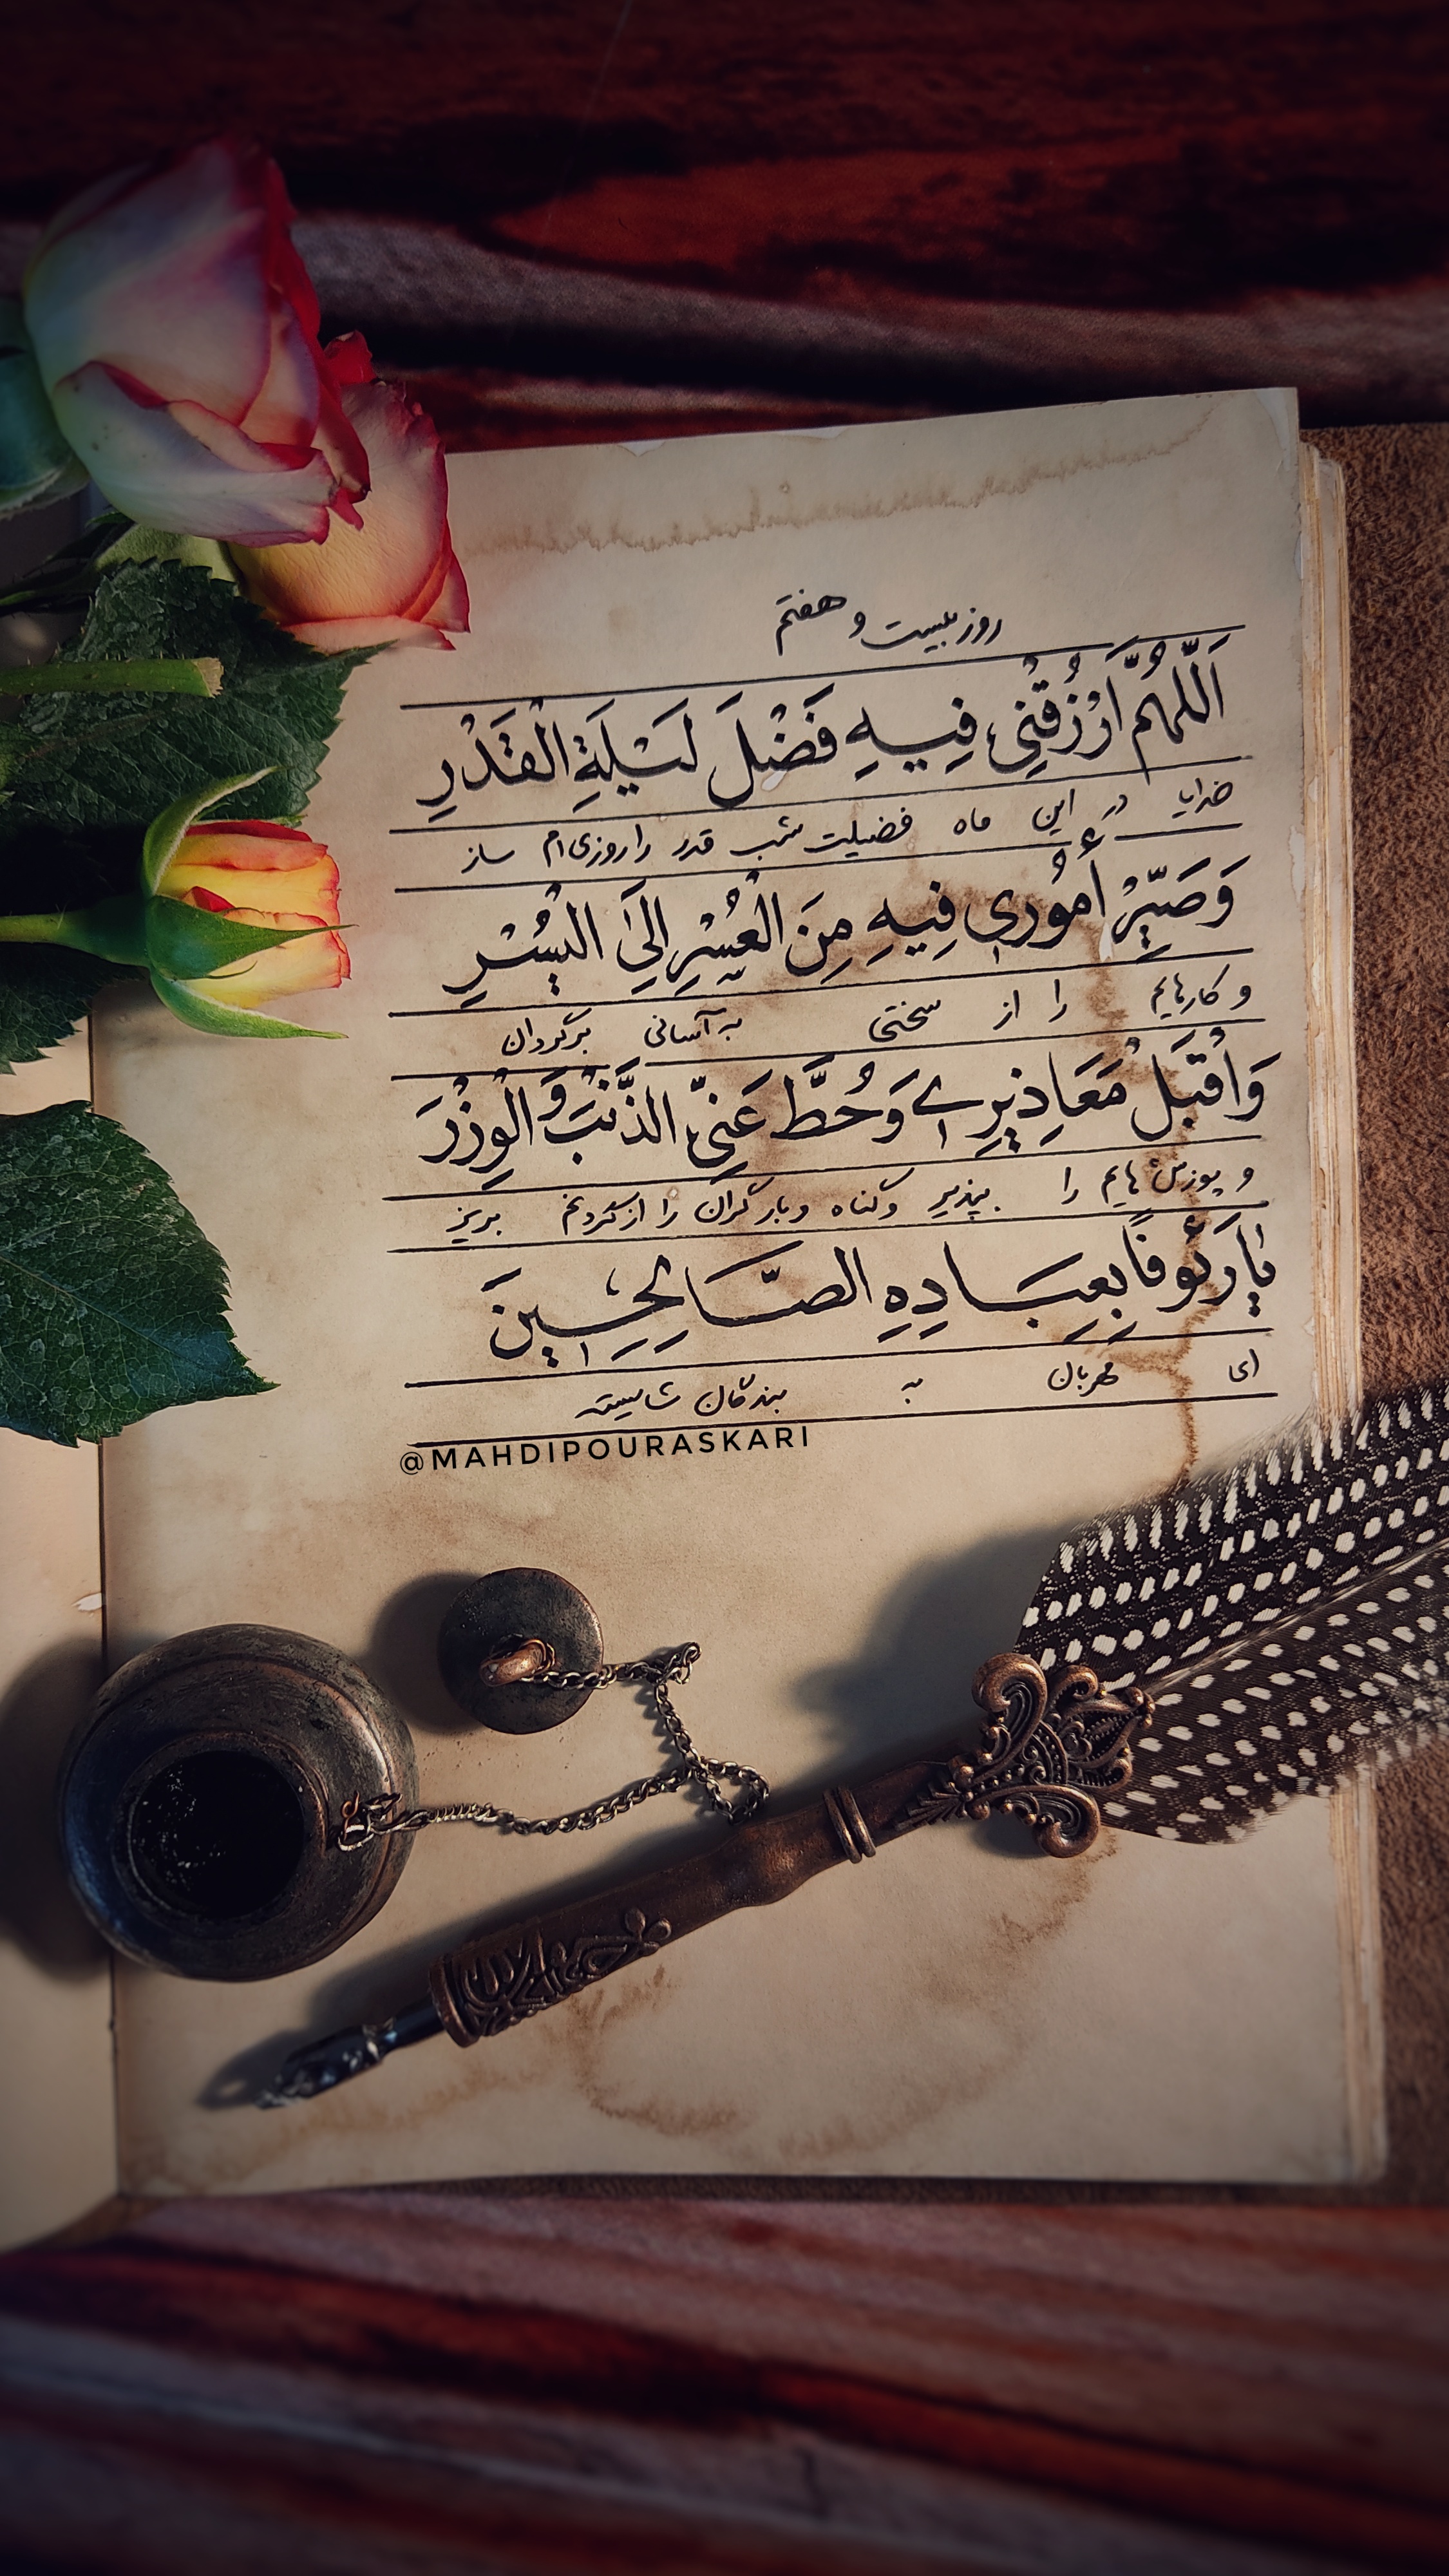 روز بیست و هفتم
اَللّهُمَّ ارْزُقْنی فِیهِ فَضْلَ لَیْلَةِ الْقَدْرِ
خدایا در این ماه فضیلت شب قدر را روزی‌ام ساز
وَصَیِّرْ أُمُورِی فِیهِ مِنَ الْعُسْرِ إِلَی الْیُسْرِ
و کارهایم را از سختی به آسانی برگردان
وَاقْبَلْ مَعَاذِیرِی وَحُطَّ عَنِّی الذَّنْبَ وَ الْوِزْرَ
و پوزش‌هایم را بپذیر و گناه و بار گران را از گردنم بریز
یَا رَئُوفًا بِعِبَادِهِ الصَّالِحِینَ
ای مهربان به بندگان شایسته
@MAHDIPOURASKARI